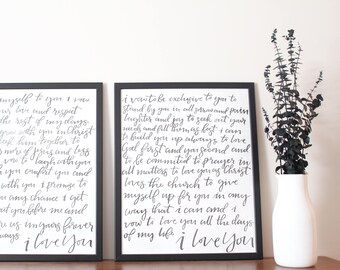 myself to you. I vow
love and respect
the rest of my days.
grow with you in Christ
together to
laugh with you
comfort you and
with you I promise to
any chance I get
you before me and
us in yours forever
always.
i love you
i want to be exclusive to you to
stand by you in all
laughter and joy to seek out your
needs and fill them as best i can
to build you up always to love
God first and you second and
to be committed to prayer in
all matters to love you as Christ
loves the church to give
myself up for you in any
way that i can and i
vow to love you all the days
of my life. i love you